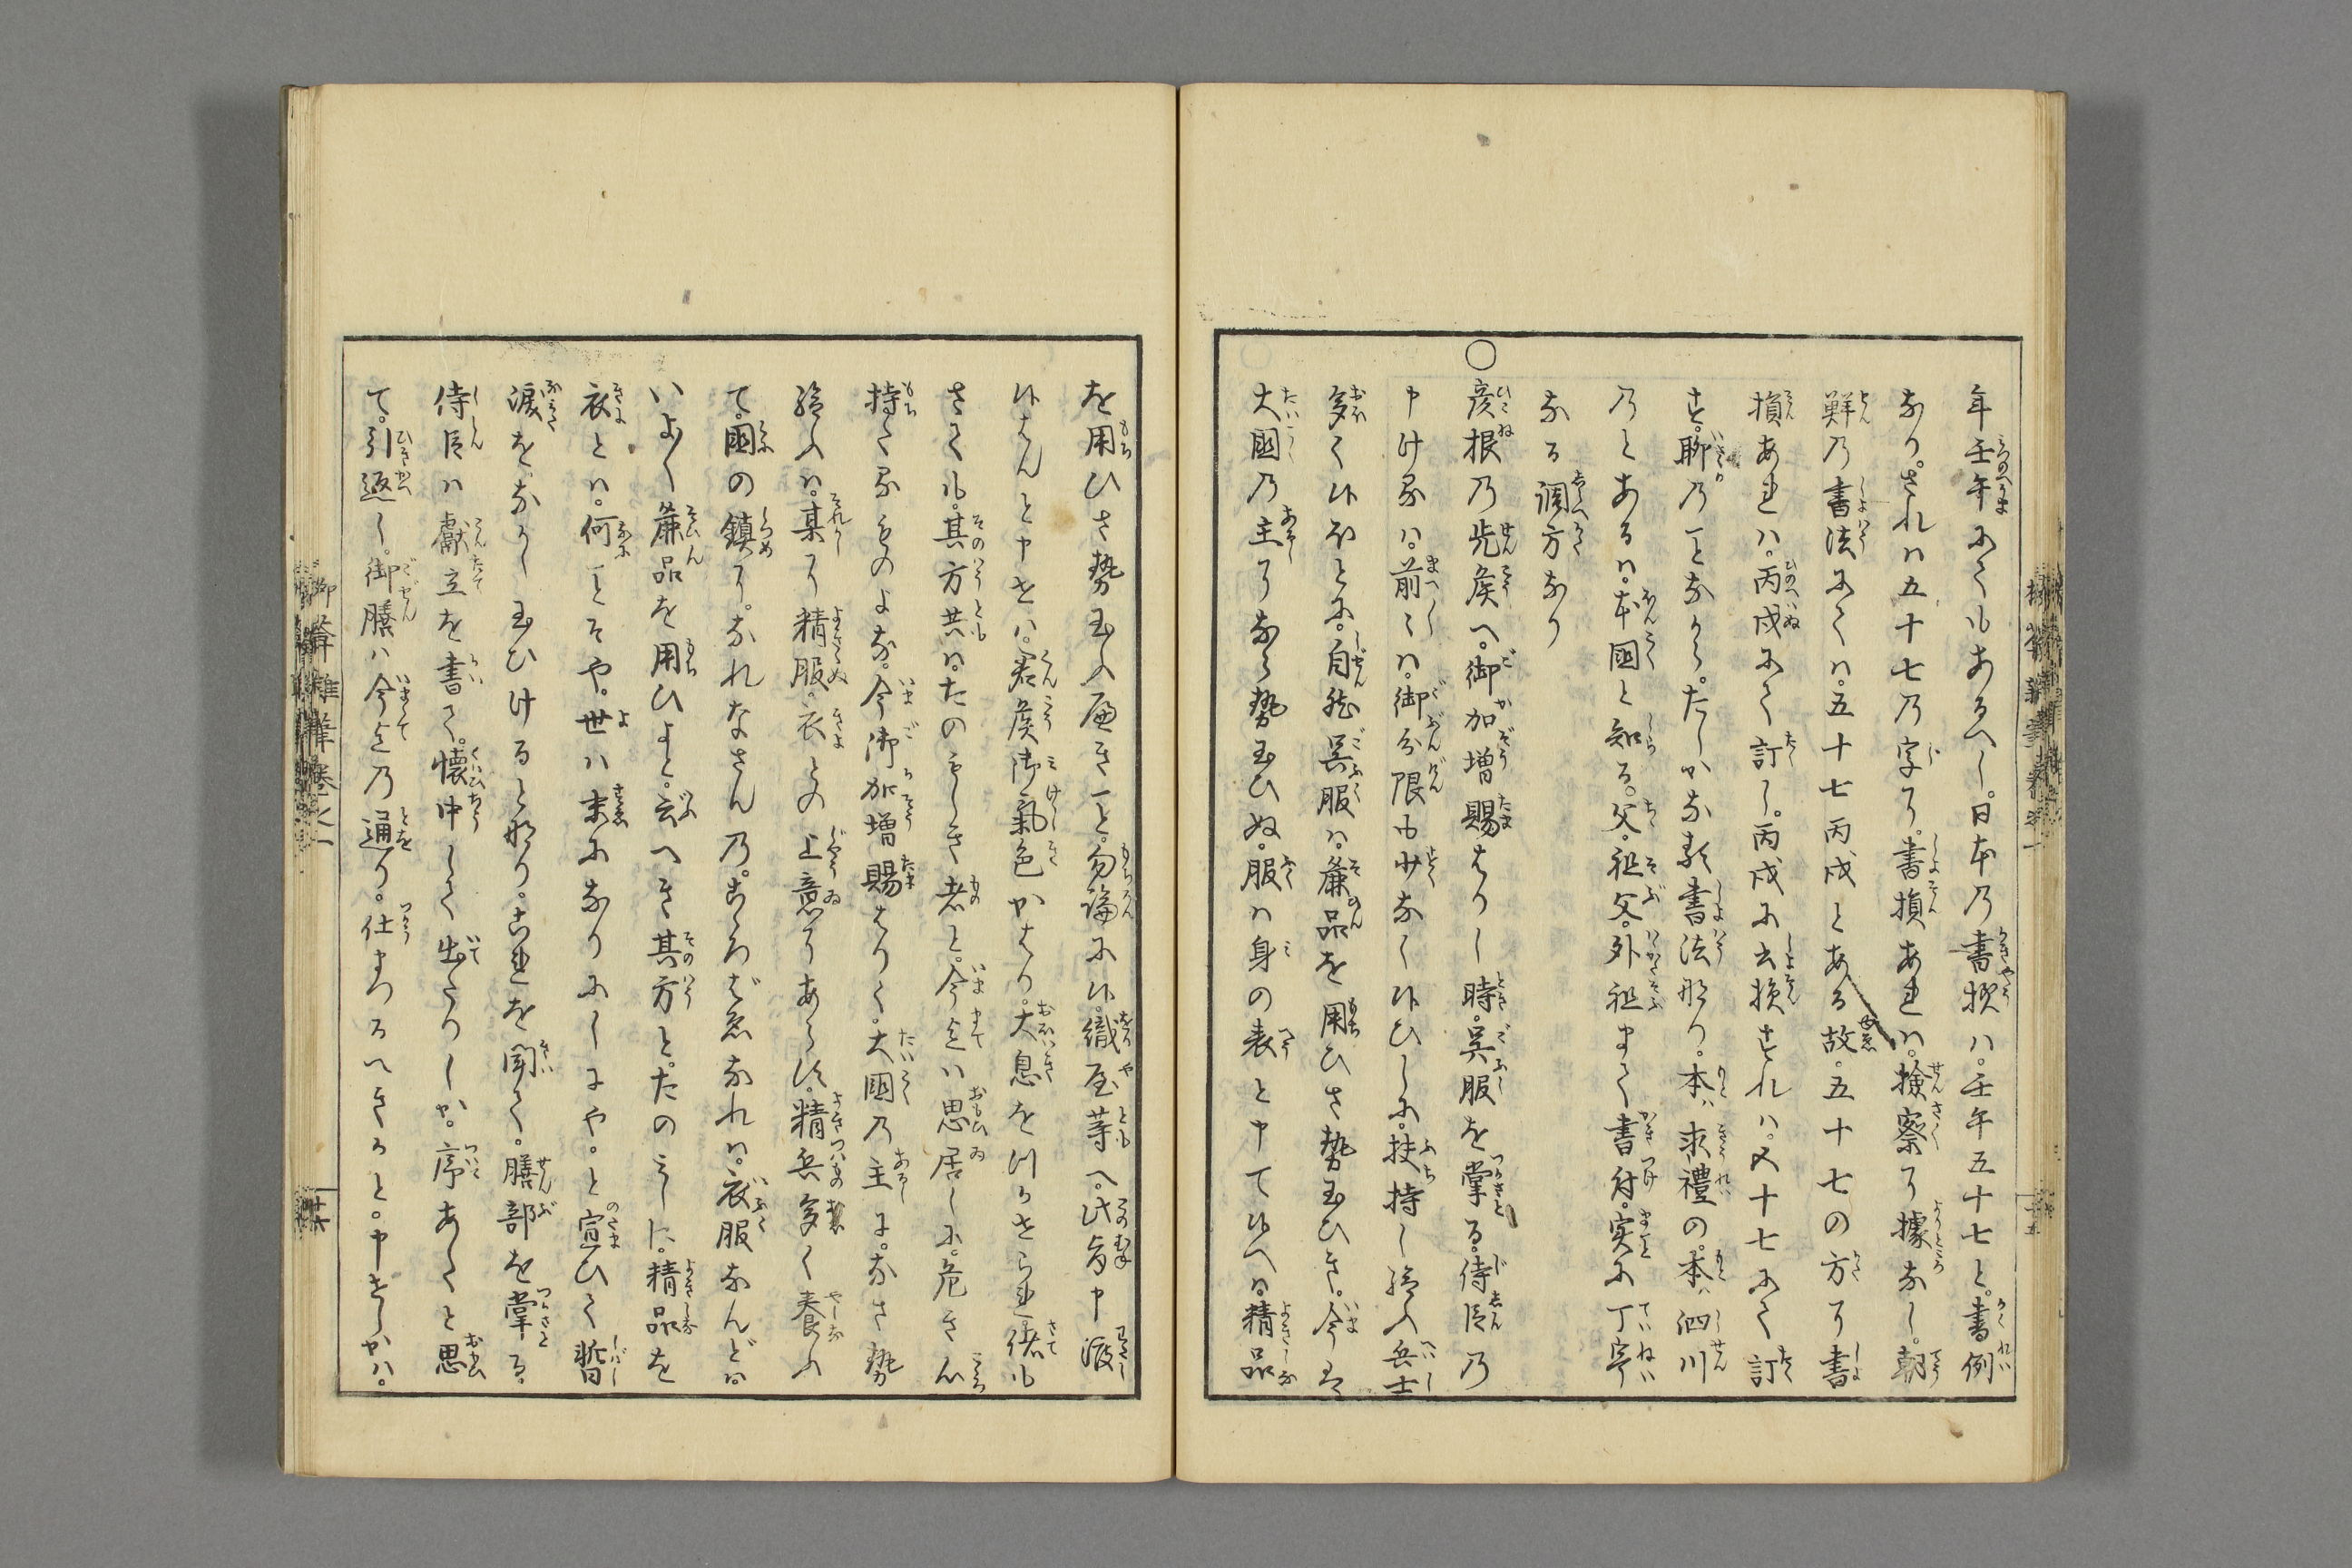 年壬午にてもあるへし。日本乃書択ハ。壬午五十七と。書例
なり。されハ五十七乃字ヿ。書損あれハ。撿察ヿ據なし。朝
鮮乃書法にてハ。五十七丙戌とある故。五十七の方ヿ書
損あれハ。丙戌にて訂し。丙戌に書損すれハ。又十七にて訂
す。聊乃ことながら。たしかな類書法なり。本ハ求禮の。本ハ泗川
乃とあるハ。本国と知る。父。祖父。外祖まて書付。実に丁寧
なる調方なり
○彦根乃先侯へ。御加増賜はりし時。呉服を掌る。侍臣乃
申けるハ。前〻ハ。御分限も少なく候ひしに。扶持し給ふ兵士
多く候ほとに。自然呉服ハ。麁品を用ひさせ玉ひき。今ハ
大国乃主ヿならせ玉ひぬ。服ハ身の表と申て候へハ。精品
を用ひさせ玉ふ届きこと。勿論に候。織屋等へ。此旨申渡
候はんと申せハ。君侯御氣色かはり。大息をつかせられ。偖も
さても。其方共ハ。たのもしき者と。今迄ハ思居しに。危き心
持てるものよな。今御加増賜はりて。大国乃主に。なさせ
給ふハ。某ヿ精服。衣よの上意ヿあらす。精兵多く養ふ
て。国の鎮ヿ。なれなさん乃。もろゑなれハ。衣服なんどハ
いよ〱麁品を用ひよと。云へき其方と。たのみしに。精品を
衣とハ。何ことそや。世ハ末になりにしにや。と宣ひて暫
涙を。ながし玉ひけると也り。これを聞て。膳部を掌る。
侍臣ハ獻立を書て。懐中して出たりしか。序あしくと思
て。引返し。御膳ハ今迄乃通り。仕まつるへきかと。申せしかハ。